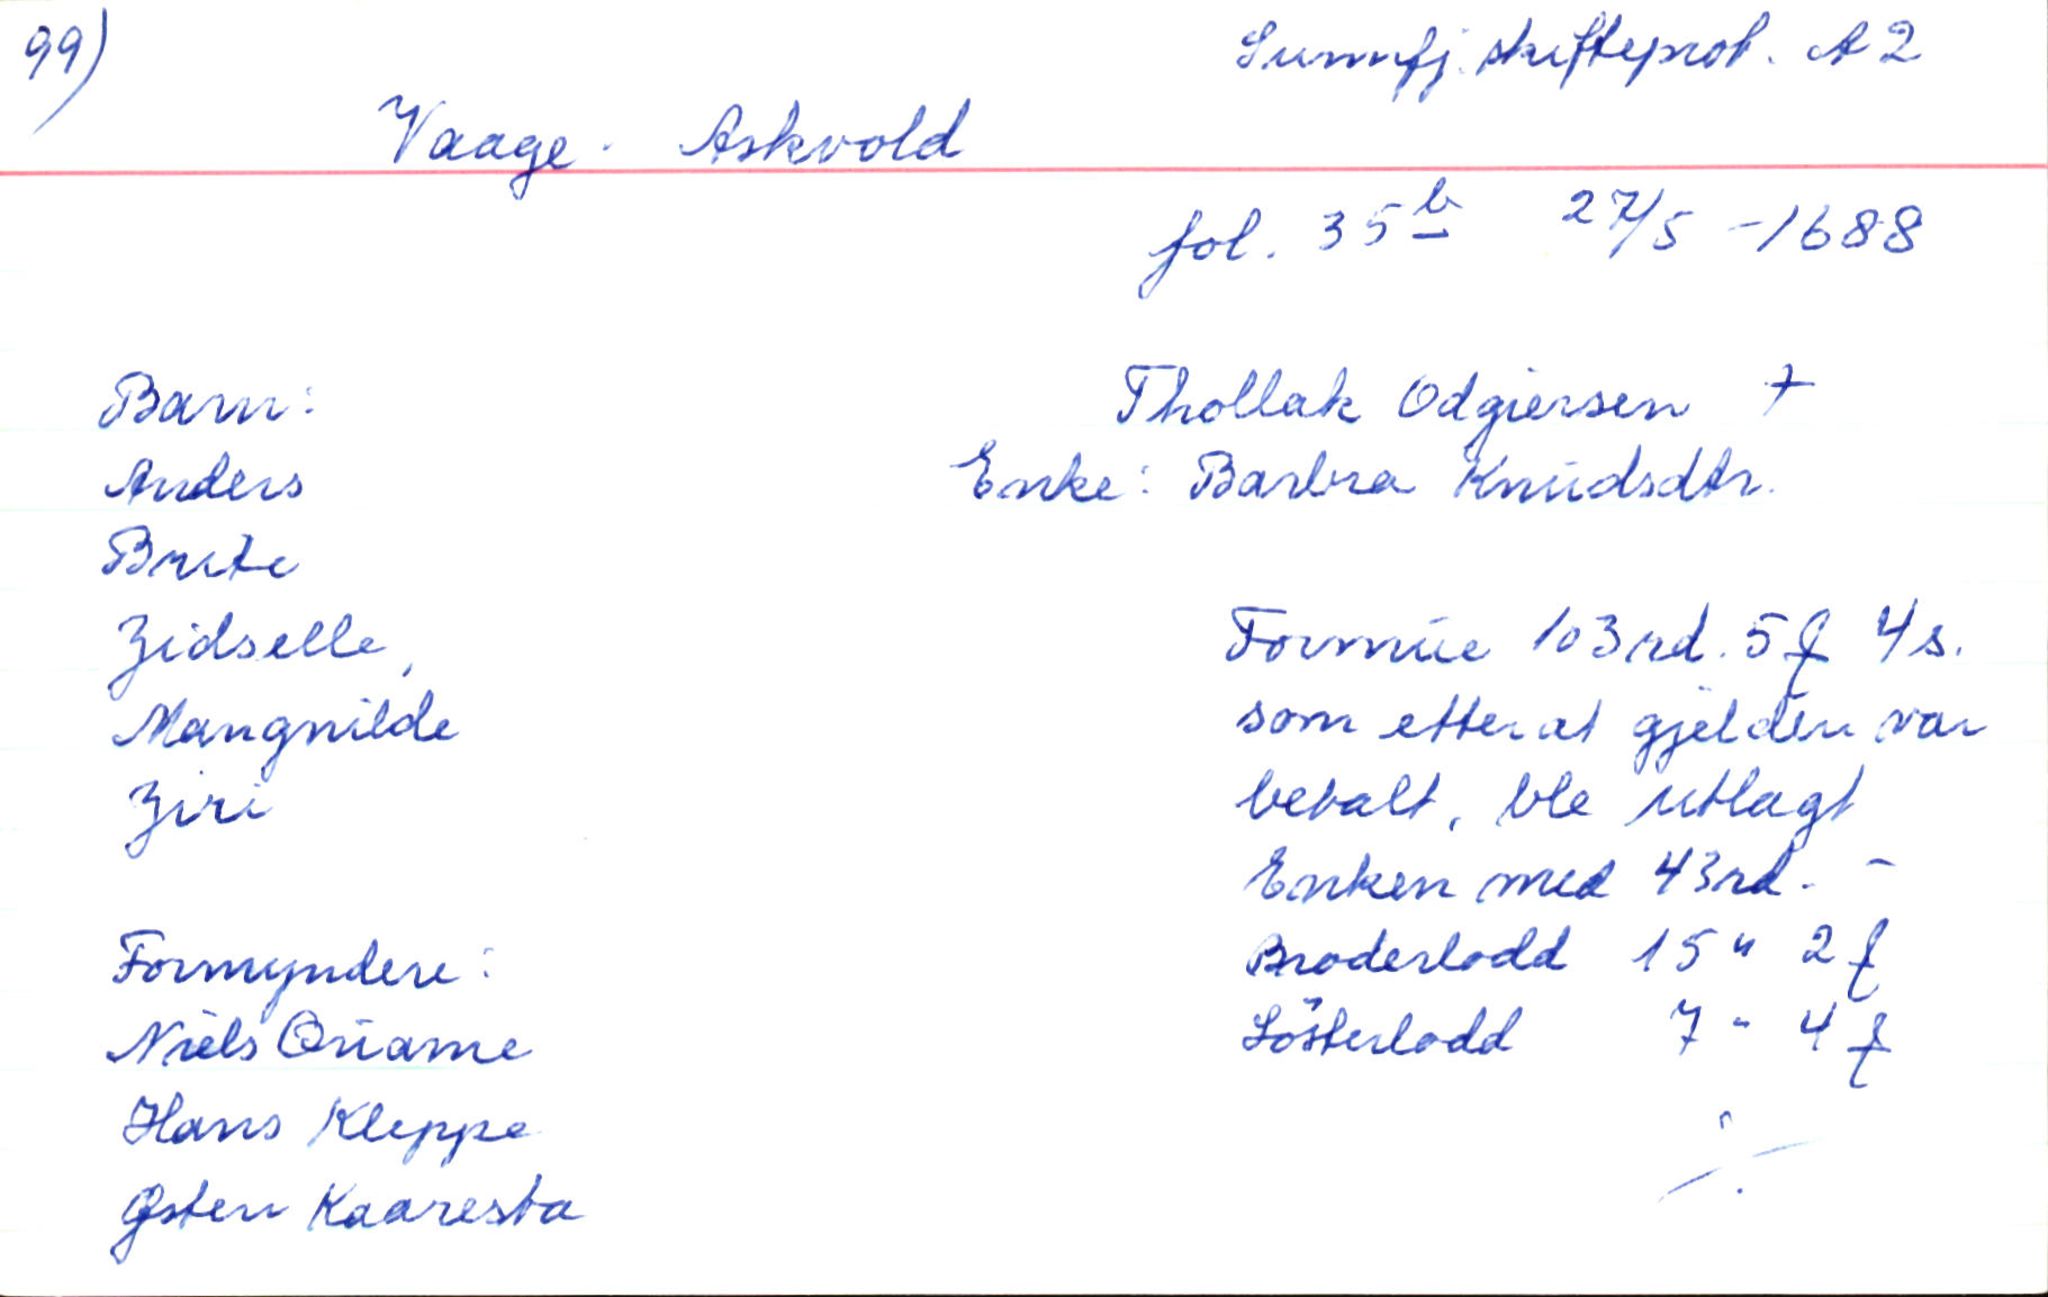 99)
Sunnfj. skifteprot. A 2
Vaage - Askvold
fol. 35 b 27/5 - 1688
Barn:
Anders
Brite
Zidselle,
Mangnilde
Ziri
Thollak Odgiersen +
Enke: Barbra Knudsdtr.
Formue 103 rd. 5 ƒ 4 s.
som etter at gjelden var
betalt, ble utlagt
Enken med 43 rd. -
Broderlodd 15 " 2 ƒ
Sösterlodd 7 " 4 ƒ
Formyndere:
Niels Quame
Hans Kleppe
Østen Kaaresta